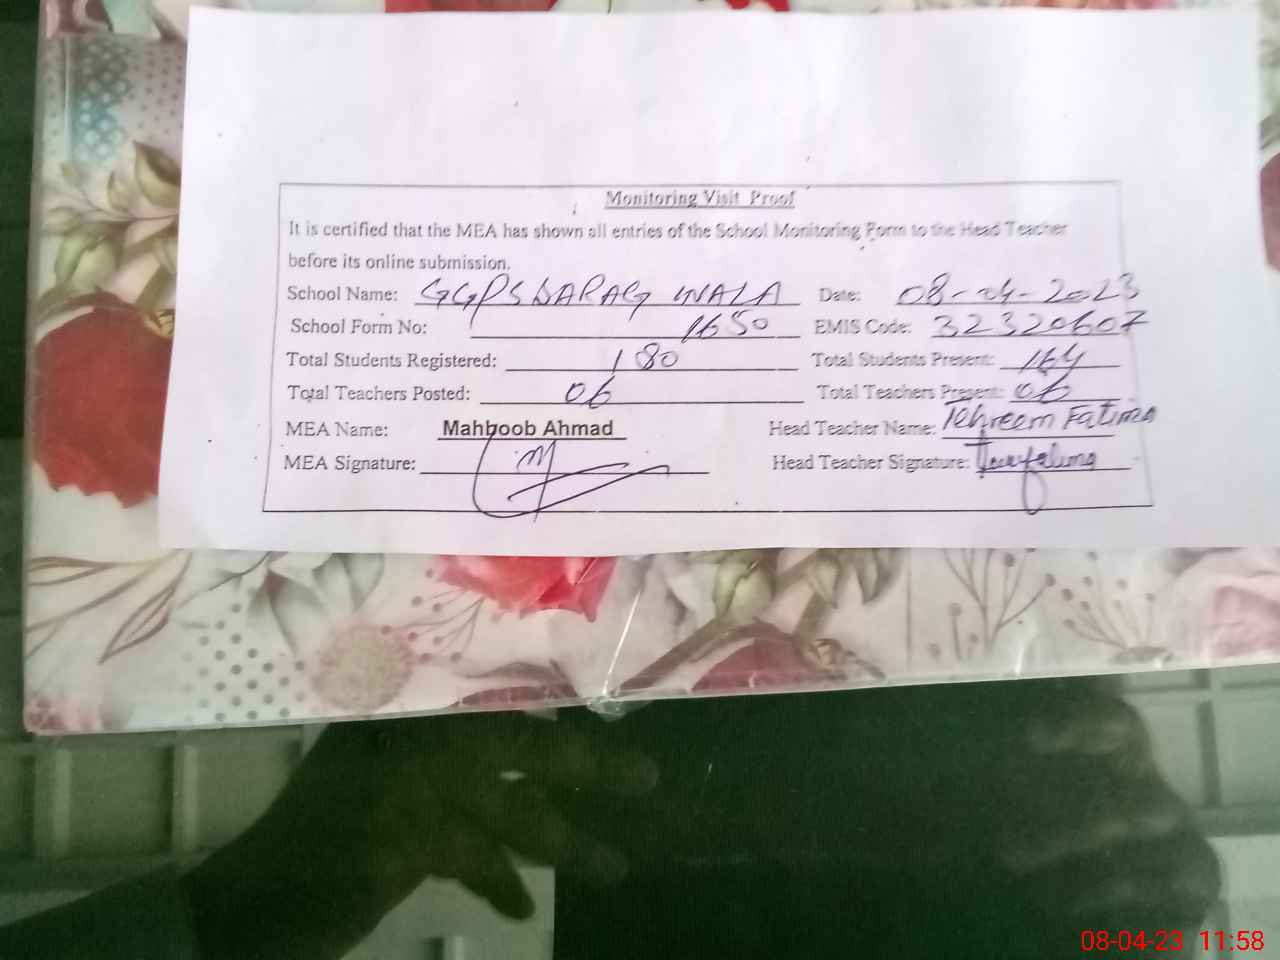 Monitoring Visit Proof
It is certified that the MEA has shown all entries of the School Monitoring Form to the Head Teacher
before its online submission.
School Name: GGPS DARAG WALA Date: 08-04-2023
School Form No: 1650 EMIS Code: 32320607
Total Students Registered: 180 Total Students Present: 164
Total Teachers Posted: 06 Total Teachers Present: 06
MEA Name: Mahboob Ahmad Head Teacher Name: Tehreem Fatima
MEA Signature: Head Teacher Signature:
08-04-23 11:58